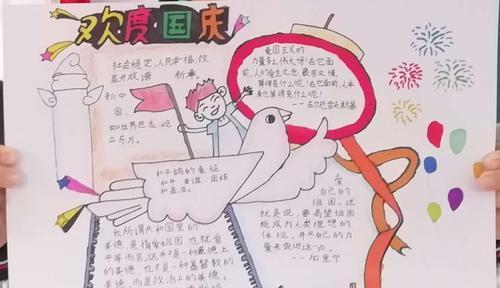 欢度国庆
社会稳定,人民幸福,改
革开放 谱 新章
新中
国,
如世界巨龙,屹
立东方。
爱国主义的
力量多么伟大呀!在它面
前,人的爱生之念,畏苦之情,
算得是什么呢!在它面前,人本
身也算得是什么呢!
——车尔尼雪夫斯基
和平鸽的象征
和平 友谊 团结
和圣洁。
爱
自己的
祖国。这
就是说,要渴望祖国
能成为人类理想的
体现,并尽自己的力
量来促进这一点。
——加里宁
我所谓共和国里的
美德,是指爱祖国 也就是爱
平等而言。这并不是一种道德上
的美德,也不是一种基督教的
美德,而是政治上的美德。